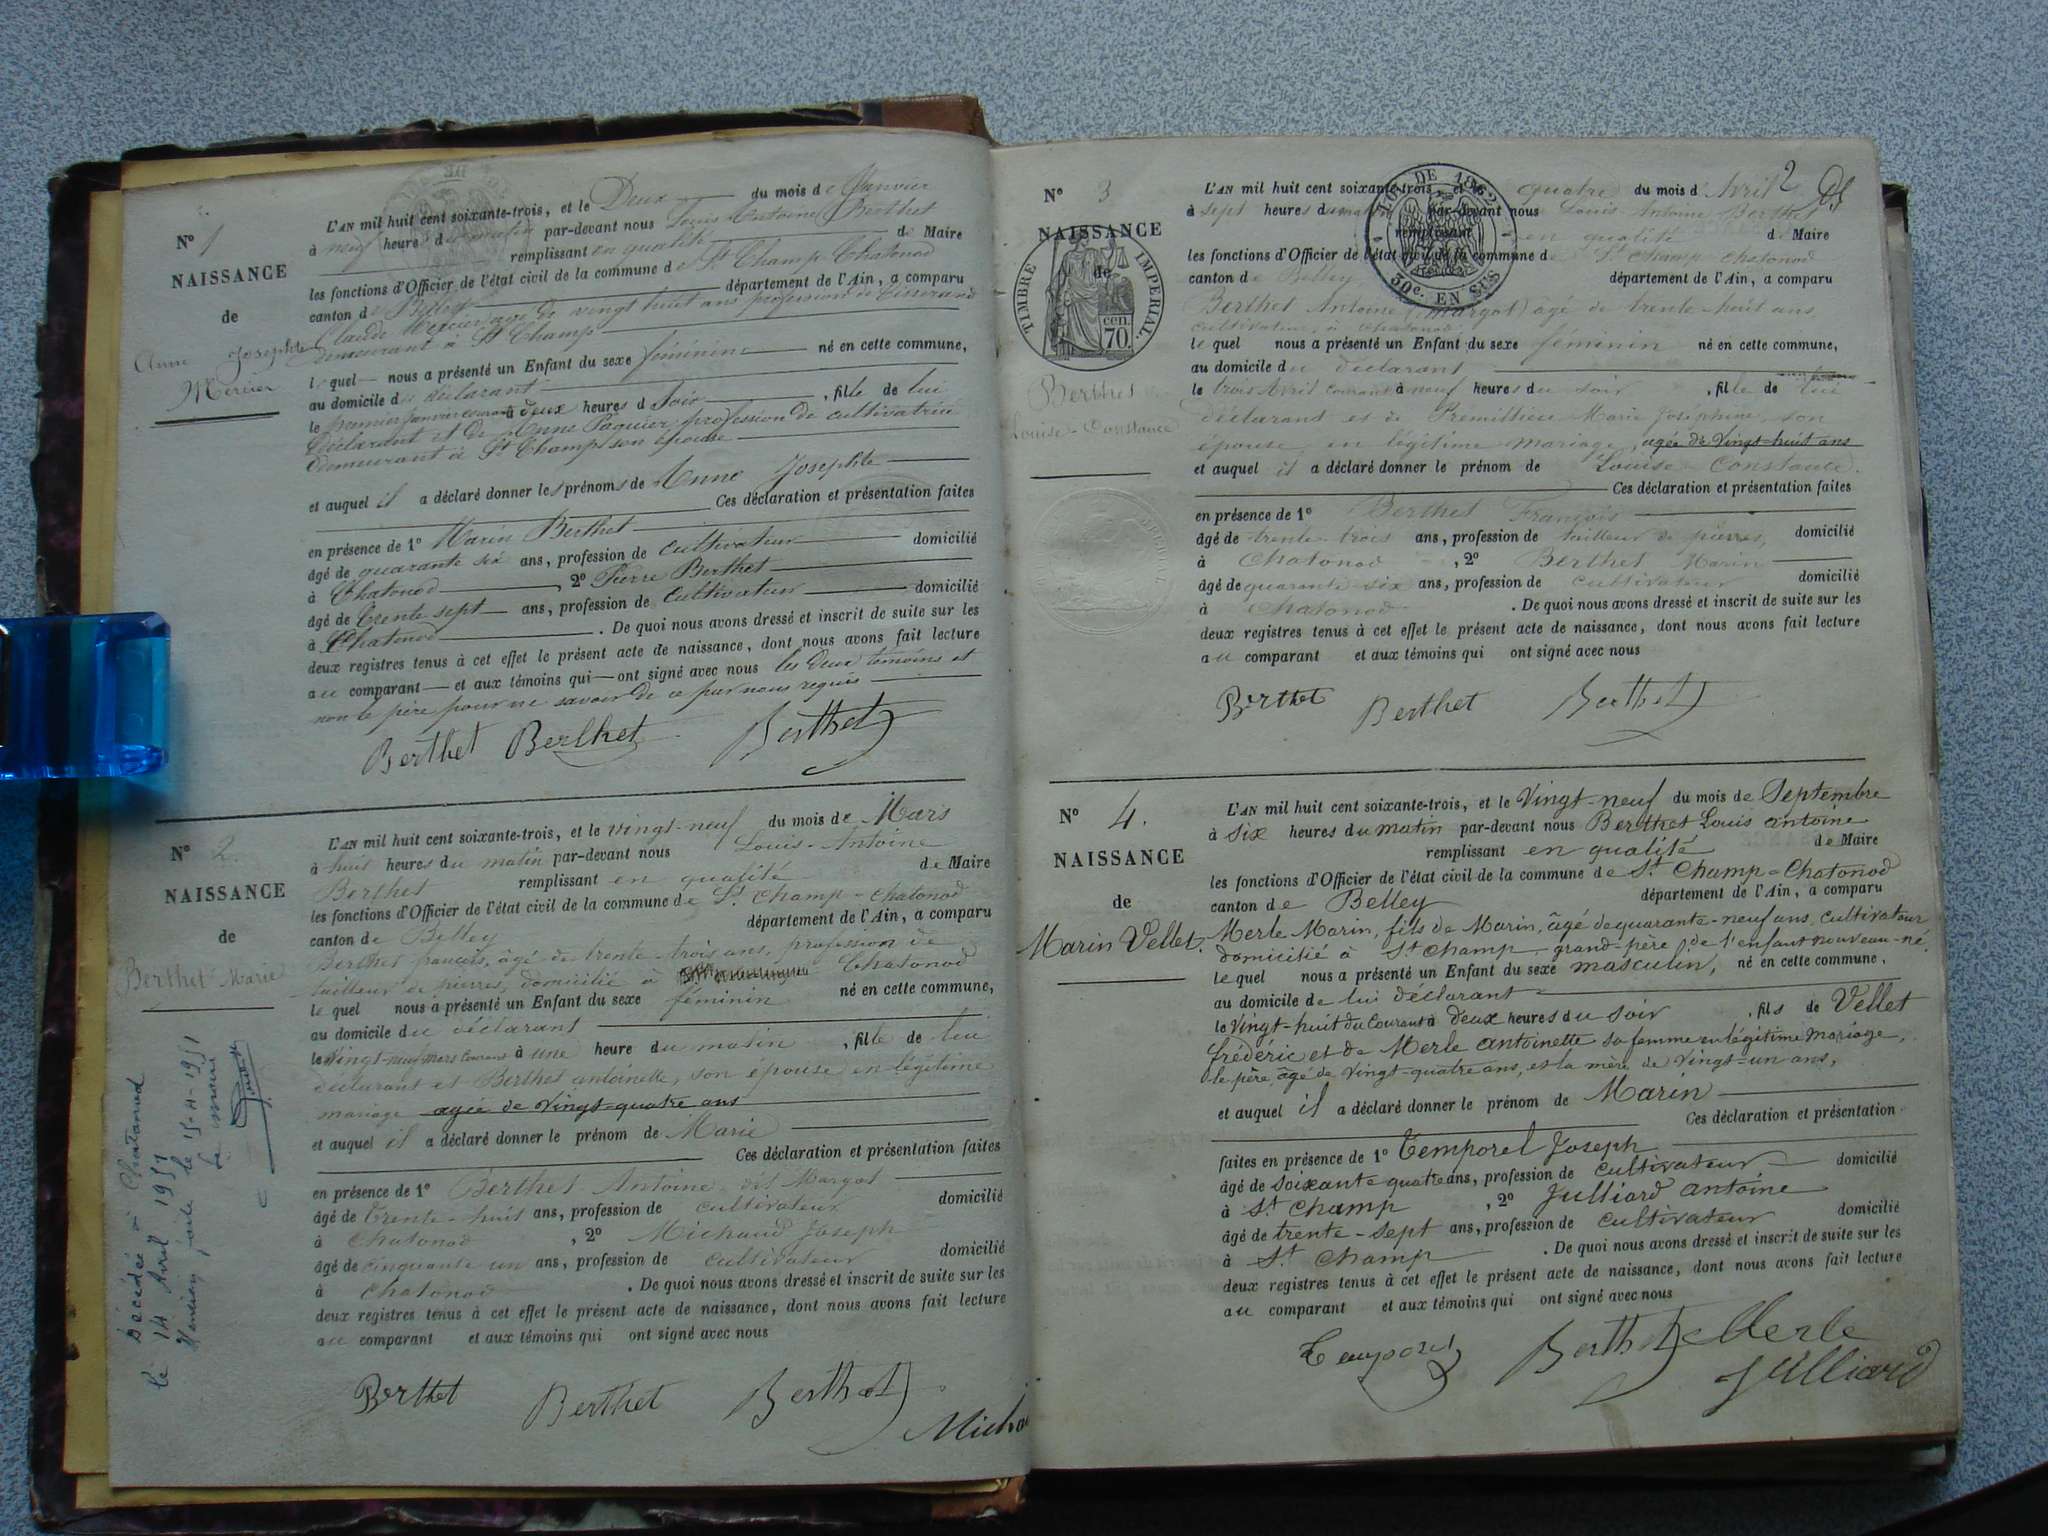 N° 1
NAISSANCE
de
Anne Josephte
Mercier
L'AN mil huit cent soixante-trois, et le Deux du mois de Janvier
à neuf heures du matin par-devant nous Louis Antoine Berthet
remplissant en qualité de Maire
les fonctions d'Officier de l'état civil de la commune de St Champ-Chatonod
canton de Belley département de l'Ain, a comparu
Claude Mercier, age de vingt huit ans profession de Tisserand
demeurant à St Champ
lequel nous a présenté un Enfant du sexe féminine né en cette commune,
au domicile du déclarant
le premier janvier courant à deux heures d soir, fille de lui
déclarant et de Anne Paquier, profession de cultivatrice
demeurant à St Champ son épouse
et auquel il a déclaré donner les prénoms de Anne Josephte
Ces déclaration et présentation faites
en présence de 1° Marin Berthet
âgé de quarante six ans, profession de cultivateur domicilié
à Chatonod, 2° Pierre Berthet
âgé de trente sept ans, profession de cultivateur domicilié
à Chatonod. De quoi nous avons dressé et inscrit de suite sur les
deux registres tenus à cet effet le présent acte de naissance, dont nous avons fait lecture
au comparant et aux témoins qui ont signé avec nous les deux témoins et
non le père pour ne savoir de ce par nous requis
Berthet Berthet Berthet
N° 2.
NAISSANCE
de
Berthet Marie
L'AN mil huit cent soixante-trois, et le vingt-neuf du mois de Mars
à huit heures du matin par-devant nous Louis-Antoine
Berthet remplissant en qualité de Maire
les fonctions d'Officier de l'état civil de la commune de St Champ-Chatonod
canton de Belley département de l'Ain, a comparu
Berthet francois, âgé de trente-trois ans, profession de
tailleur de pierres, domicilié à Chatonod
lequel nous a présenté un Enfant du sexe féminin né en cette commune,
au domicile du déclarant
le vingt-neuf mars courant à une heure du matin, fille de lui
déclarant et Berthet antoinette, son épouse en légitime
mariage agée de vingt-quatre ans
et auquel il a déclaré donner le prénom de Marie
Ces déclaration et présentation faites
en présence de 1° Berthet Antoine dit Margot
âgé de trente-huit ans, profession de cultivateur domicilié
à Chatonod, 2° Michaud Joseph
âgé de cinquante un ans, profession de cultivateur domicilié
à Chatonod. De quoi nous avons dressé et inscrit de suite sur les
deux registres tenus à cet effet le présent acte de naissance, dont nous avons fait lecture
au comparant et aux témoins qui ont signé avec nous
Berthet Berthet Berthet
Micha
Décédée à Chatonod
le 14 Avril 1951
Mention faite le 15-4-1951
Le maire
2
N° 3
NAISSANCE
de
TIMBRE IMPERIAL.
70 cen.
LOI DE 1862
30c. EN SUS
Berthet
Louise-Constance
L'AN mil huit cent soixante-trois, et le quatre du mois d Avril
à sept heures du matin par-devant nous Louis Antoine Berthet
remplissant en qualité de Maire
les fonctions d'Officier de l'état civil de la commune de St Champ-Chatonod
canton de Belley département de l'Ain, a comparu
Berthet Antoine (Margot) âgé de trente-huit ans,
cultivateur, à Chatonod
lequel nous a présenté un Enfant du sexe féminin né en cette commune,
au domicile du déclarant
le trois Avril courant à neuf heures du soir, fille de lui
déclarant et de Premillieu Marie Josephine, son
épouse en légitime mariage, agée de vingt-huit ans
et auquel il a déclaré donner le prénom de Louise-Constance.
Ces déclaration et présentation faites
en présence de 1° Berthet François
âgé de trente-trois ans, profession de tailleur de pierres, domicilié
à Chatonod, 2° Berthet Marin
âgé de quarante-six ans, profession de cultivateur domicilié
à Chatonod. De quoi nous avons dressé et inscrit de suite sur les
deux registres tenus à cet effet le présent acte de naissance, dont nous avons fait lecture
au comparant et aux témoins qui ont signé avec nous
Berthet Berthet Berthet
N° 4.
NAISSANCE
de
Marin Vellet.
L'AN mil huit cent soixante-trois, et le Vingt-neuf du mois de Septembre
à six heures du matin par-devant nous Berthet Louis antoine
remplissant en qualité de Maire
les fonctions d'Officier de l'état civil de la commune de St Champ-Chatonod
canton de Belley département de l'Ain, a comparu
Merle Marin, fils de Marin, âgé de quarante-neuf ans, cultivateur
domicilié à St Champ, grand-père de l'enfant nouveau-né.
lequel nous a présenté un Enfant du sexe masculin, né en cette commune.
au domicile de lui déclarant
le Vingt-huit du courant à deux heures du soir, fils de Vellet
frédéric et de Merle antoinette sa femme en légitime mariage,
le père, âgé de Vingt-quatre ans, est la mère de Vingt-un ans,
et auquel il a déclaré donner le prénom de Marin
Ces déclaration et présentation
faites en présence de 1° Temporel Joseph
âgé de soixante quatre ans, profession de cultivateur domicilié
à St Champ, 2° Julliard antoine
âgé de trente-sept ans, profession de cultivateur domicilié
à St Champ. De quoi nous avons dressé et inscrit de suite sur les
deux registres tenus à cet effet le présent acte de naissance, dont nous avons fait lecture
au comparant et aux témoins qui ont signé avec nous
Temporel Berthet Merle
Julliard